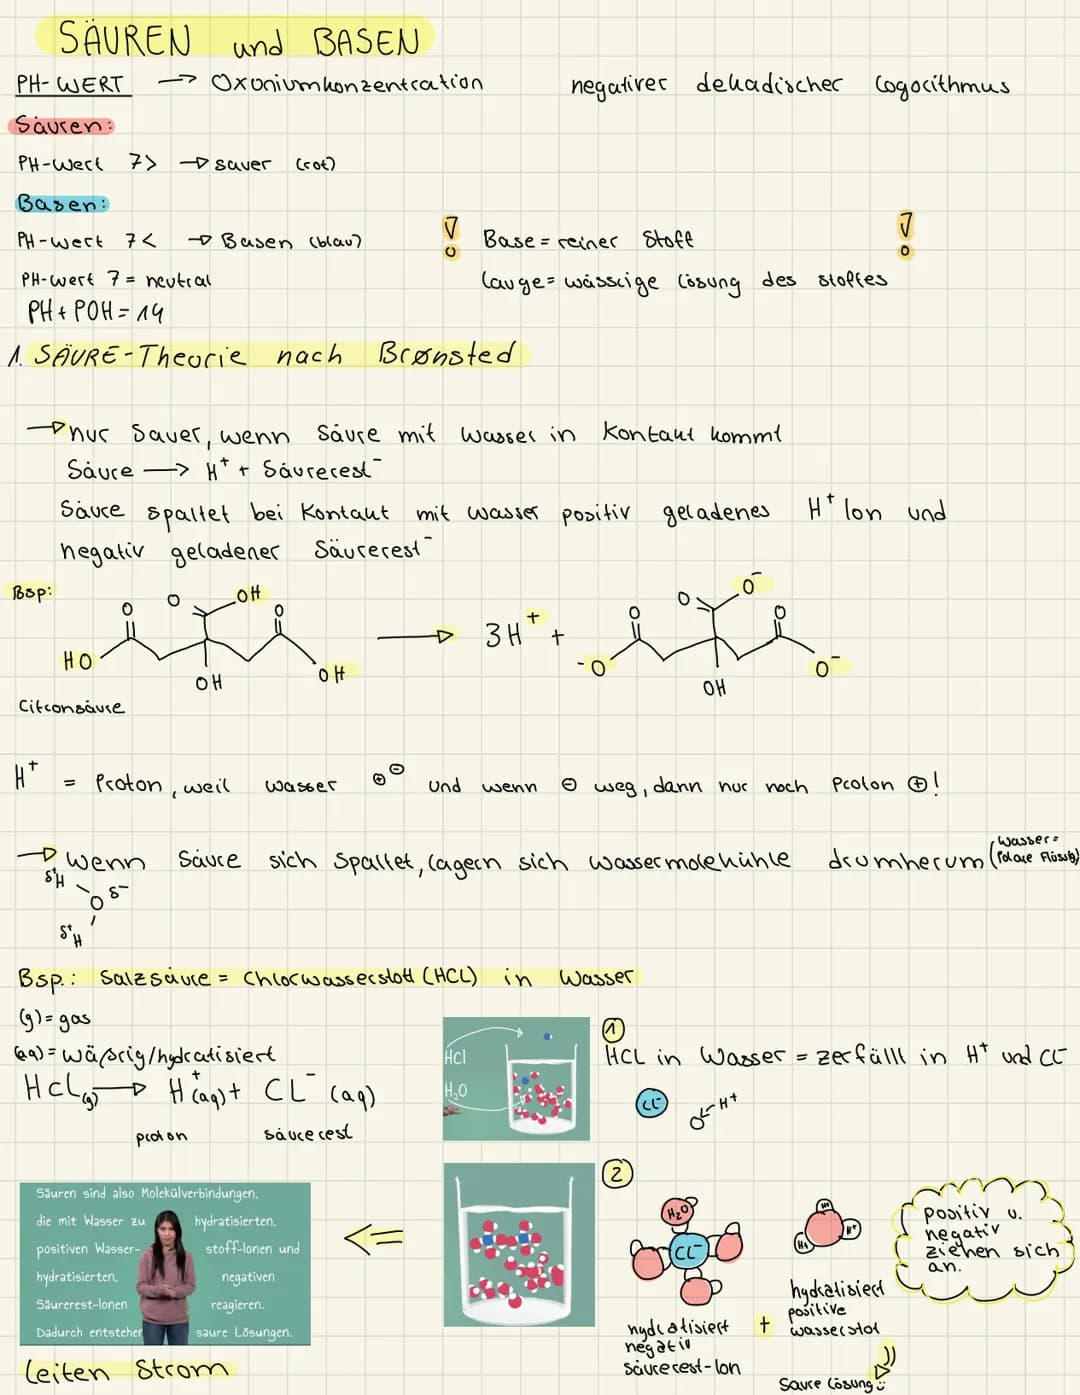 SÄUREN und BASEN
PH-WERT → Oxoniumkonzentration negativer dekadischer Logorithmus
Säuren:
PH-Wert 7> → sauer (rot)
Basen:
PH-Wert 7< → Basen (blau)
Base = reiner Stoff
PH-Wert 7 = neutral
Lauge = wässrige Lösung des stoffes
PH + POH = 14
1. SÄURE-Theorie nach Brønsted
→ nur Sauer, wenn Säure mit Wasser in Kontakt kommt
Säure → H⁺ + Säurerest⁻
Säure spaltet bei Kontakt mit Wasser positiv geladenes H⁺ Ion und
negativ geladener Säurerest⁻
Bsp:
O O OH O
HO OH OH
→ 3H⁺ +
O O O⁻ O
-O OH O⁻
Citronsäure
H⁺ = Proton, weil wasser ⊕⊖ und wenn ⊖ weg, dann nur noch Proton ⊕!
→ Wenn Säure sich Spaltet, lagern sich wassermolekühle drumherum (Wasser = Polare Flüssig)
δ⁺H
O δ⁻
δ⁺H
Bsp.: Salzsäure = Chlorwasserstoff (HCL) in Wasser
(g) = gas
(aq) = wäßrig/hydratisiert
HCL(g) → H⁺(aq) + CL⁻(aq)
proton säurerest
HCl
H₂O
①
HCL in Wasser = zerfällt in H⁺ und CL⁻
CL⁻ O←H⁺
Säuren sind also Molekülverbindungen,
die mit Wasser zu hydratisierten,
positiven Wasser- stoff-Ionen und
hydratisierten, negativen
Säurerest-Ionen reagieren.
Dadurch entstehen saure Lösungen.
leiten Strom
②
H₂O
CL⁻
hydratisiert
negativ
säurerest-Ion
+
H⁺ H⁺ H⁺
hydratisiert
positive
wasserstof
positiv u.
negativ
ziehen sich
an.
Saure Lösung